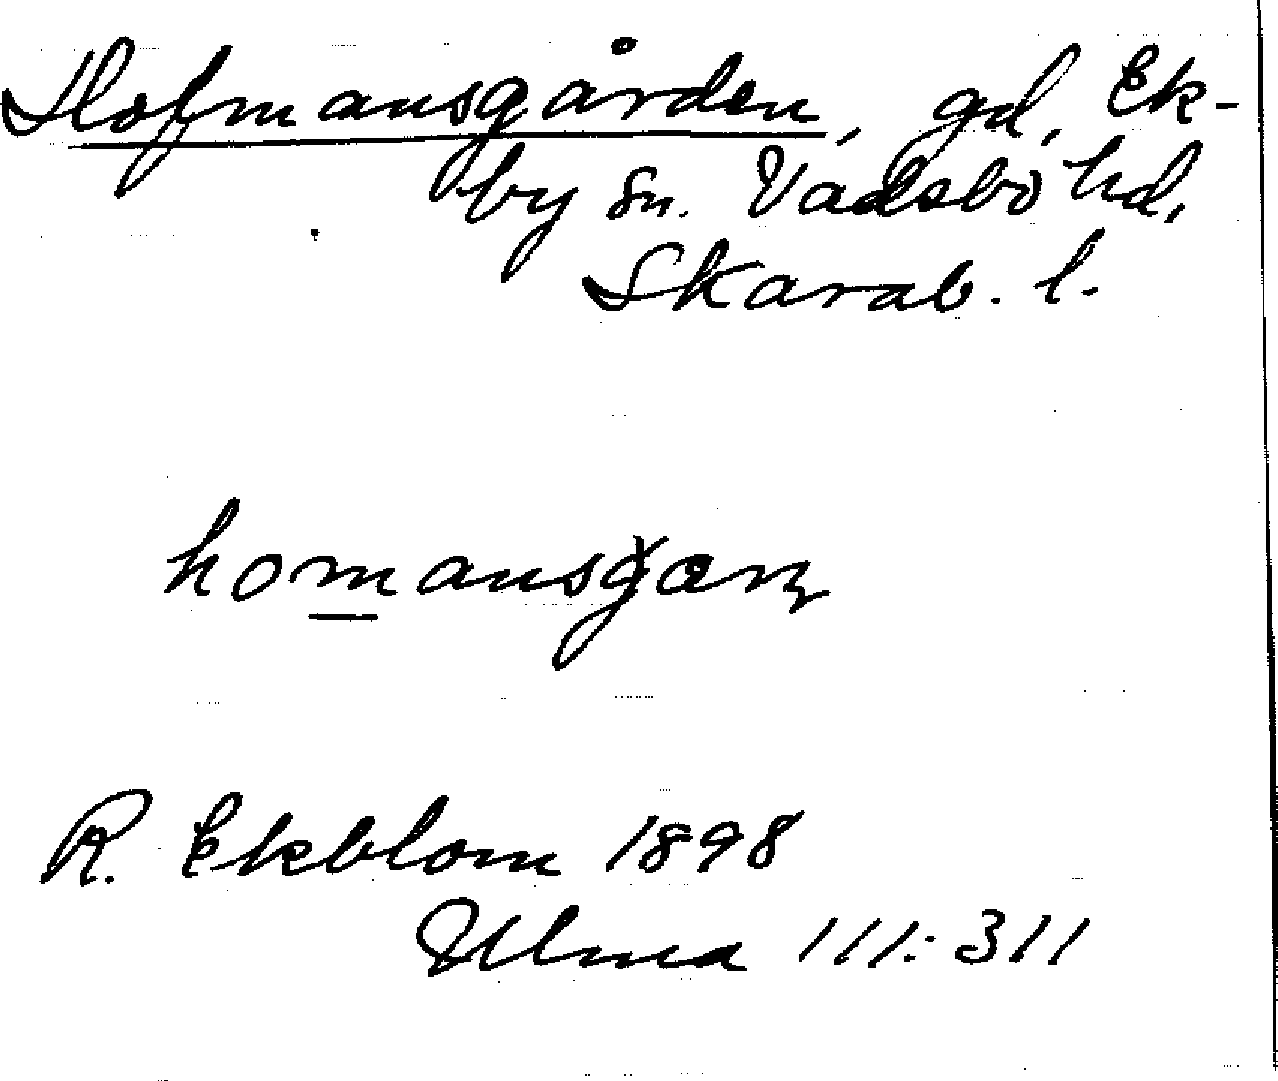 Hofmansgården, gd, Ek-
by sn. Vadsbo hd,
Skarab. l.
R. Ekblom 1898
Ulma 111:311